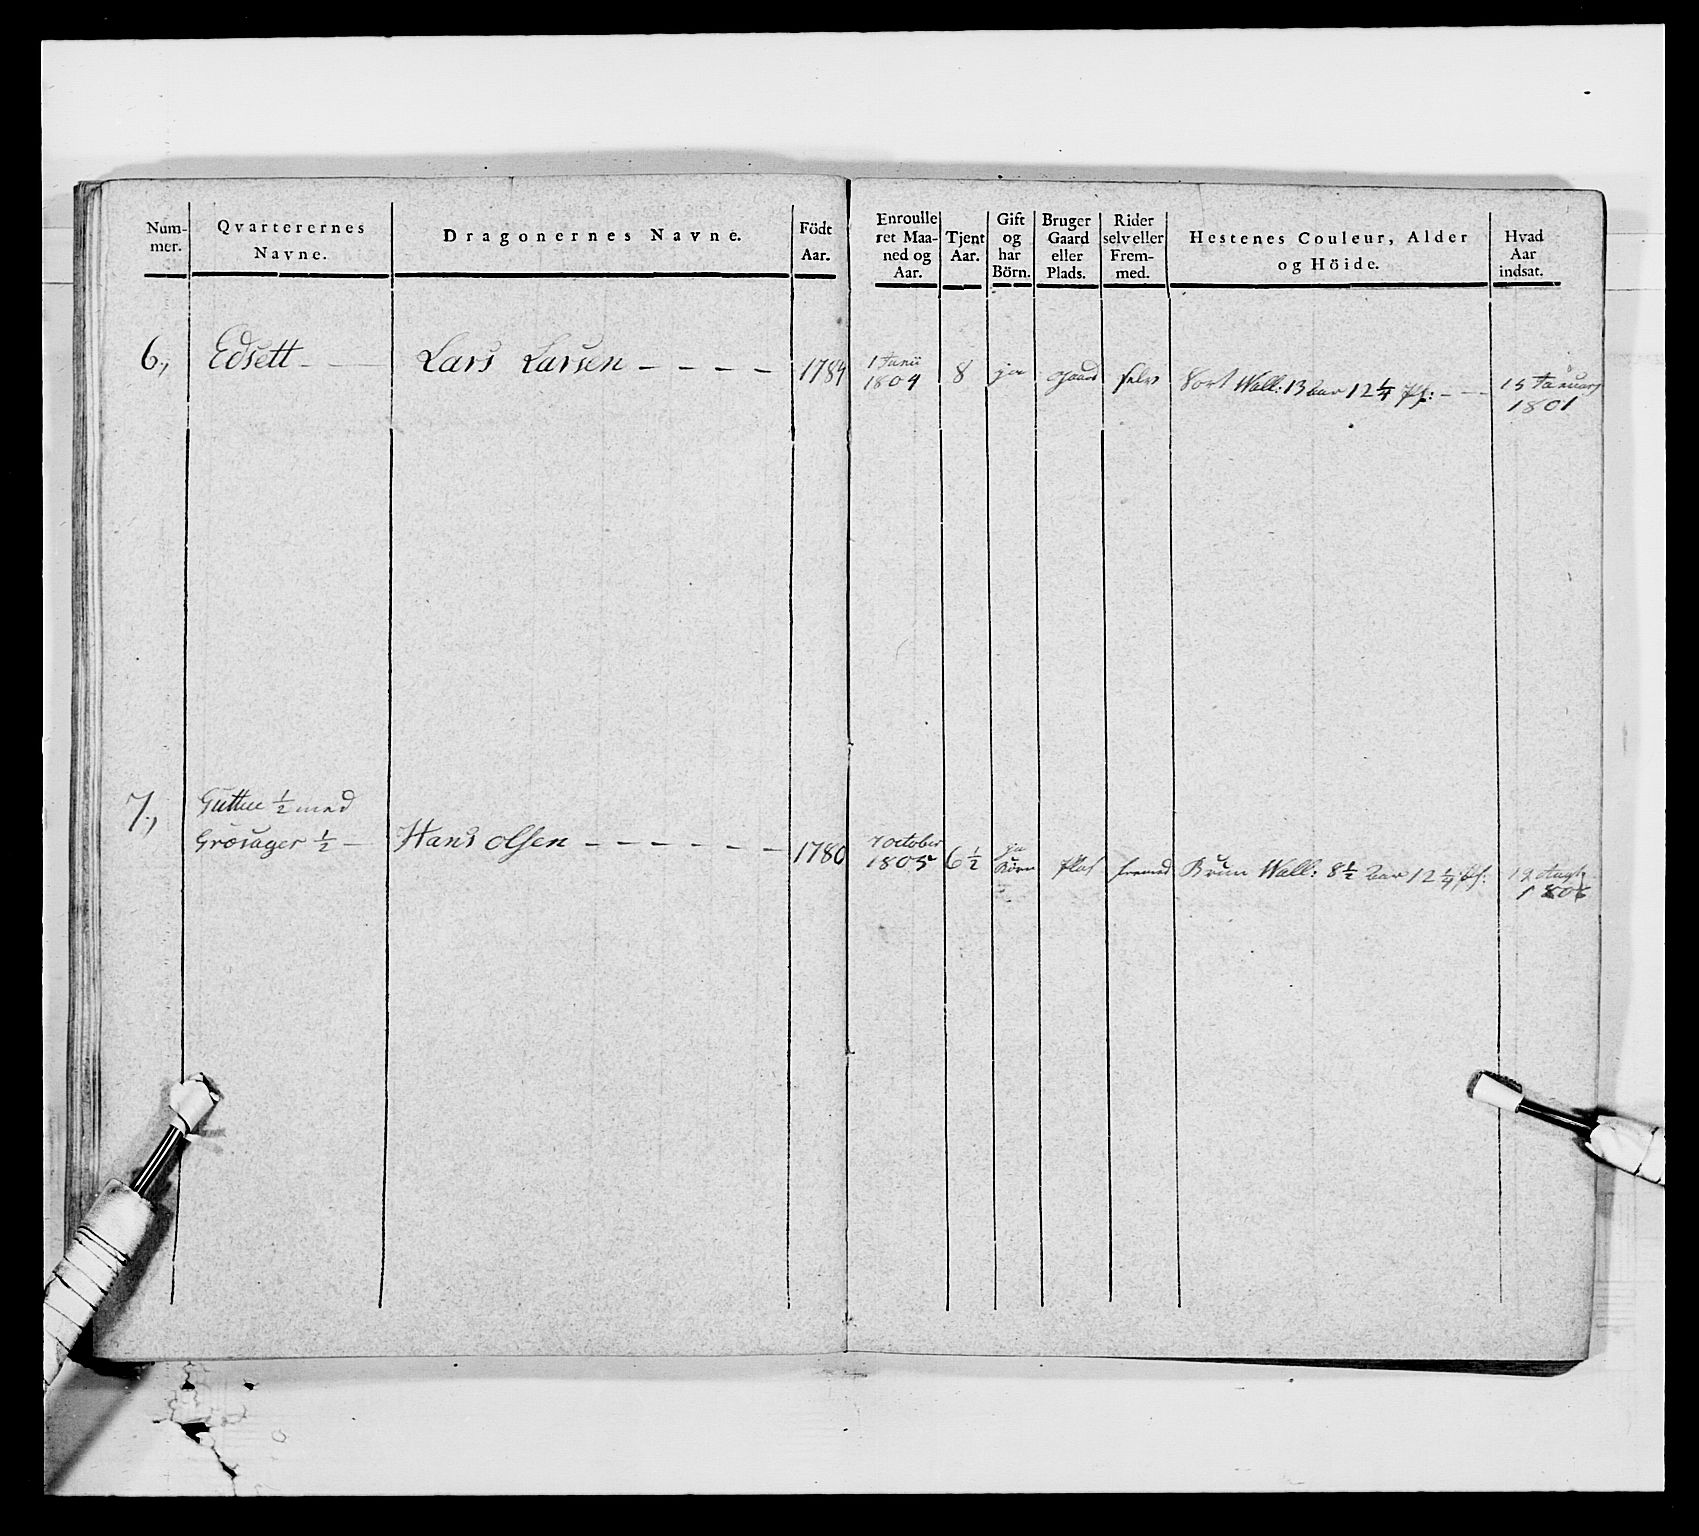 Num-
mer.
Qvarterernes
Navne.
Dragonernes Navne.
Födt
Aar.
Enroulle
ret Maa-
ned og
Aar.
Tjent
Aar.
Gift
og
har
Börn.
Bruger
Gaard
eller
Plads.
Rider
selv eller
Frem-
med.
Hestenes Couleur, Alder
og Höide.
Hvad
Aar
indsat.
6., Edsett - Lars Larsen - - - - 1784
1 Junii
1804 8 ja gaard selv Sort Wall: 13 aar 12 1/4 - - -
15 Januarj
1801
7., 1/2 med
Grösager 1/2 - Hans Olsen - - - - - - 1780
7 October
1805 6 1/2
ja
Börn Plas fremed Brun Wall: 8 1/2 aar 12 1/4